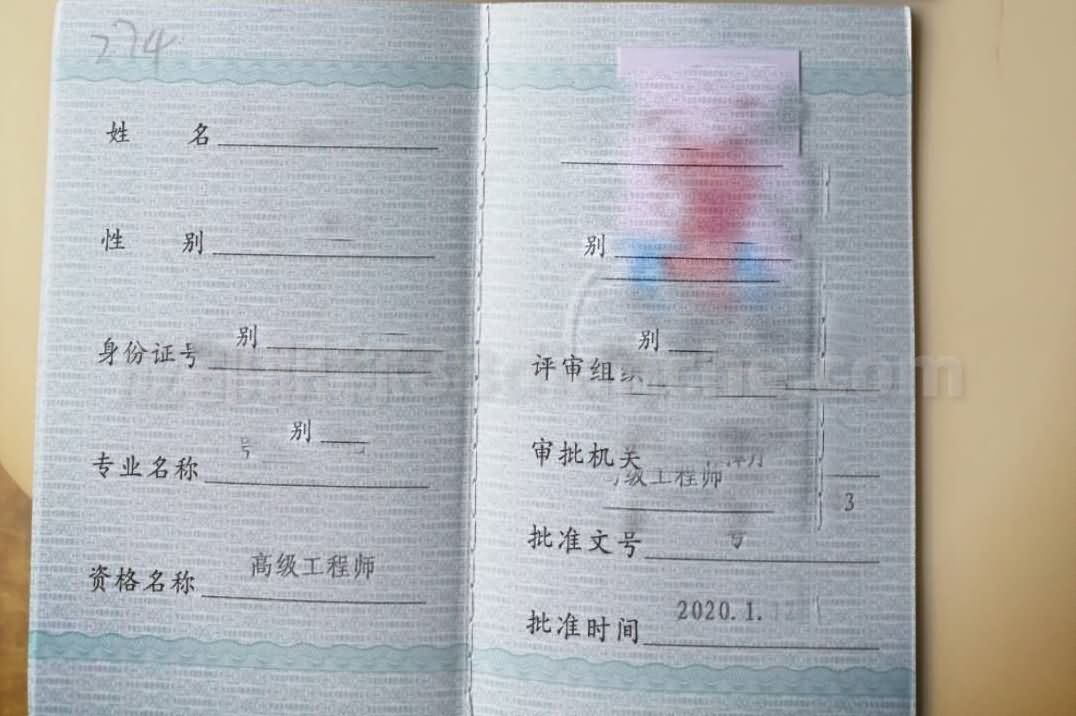 274
姓 名
性 别
别
身份证号
号 别
专业名称
资格名称 高级工程师
别
别
评审组织
审批机关
级工程师
3
批准文号 号
批准时间 2020.1.12